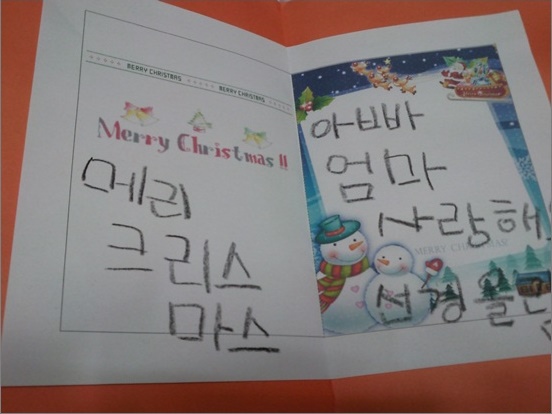 MERRY CHRISTMAS MERRY CHRISTMAS
Merry Christmas !!
메리
크리스
마스
아빠
엄마
사랑해
MERRY CHRISTMAS